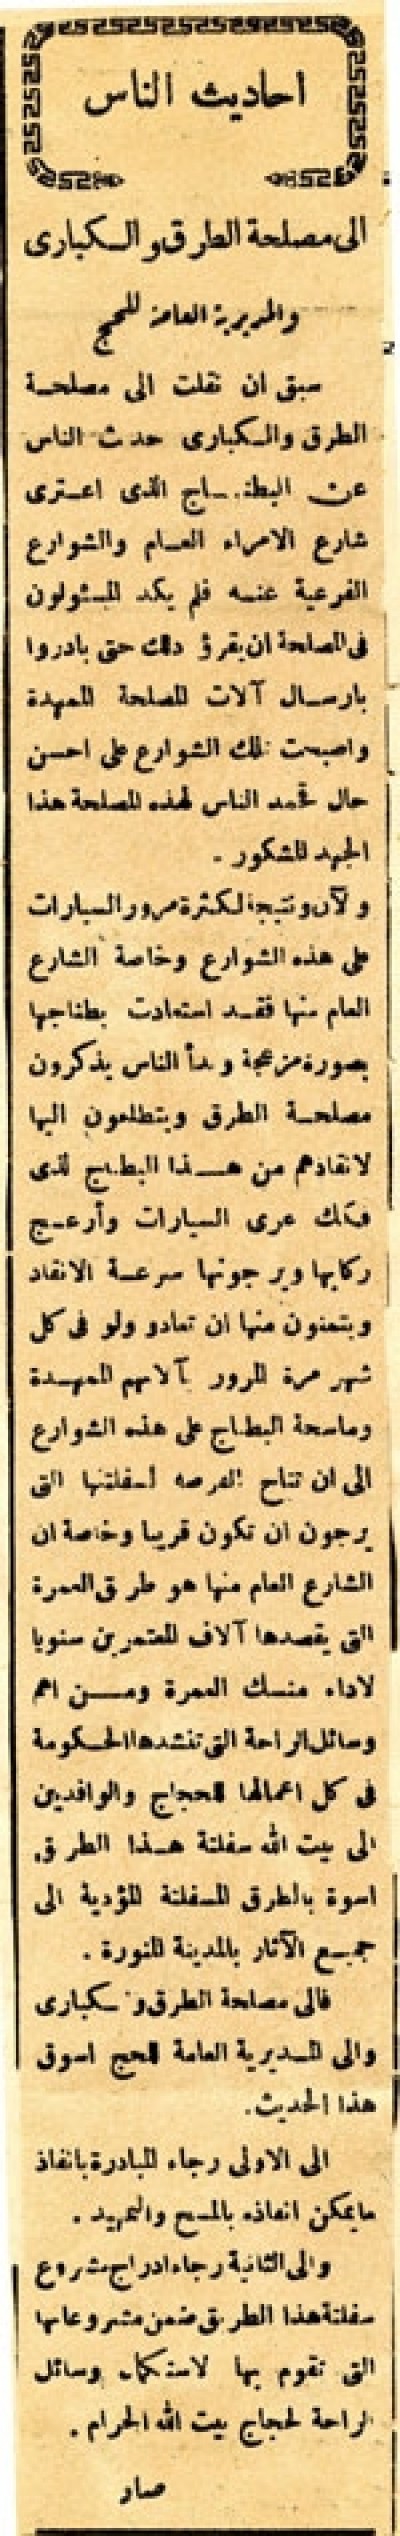 احاديث الناس
الى مصلحة الطرق والكبارى
والمديرية العامة للحج
سبق ان نقلت الى مصلحة
الطرق والكبارى حدث الناس
عن البطناج الذى اعترى
شارع الامراء العام والشوارع
الفرعية عنه فلم يكد المسئولون
فى المصلحة ان يقرؤ ذلك حتى بادروا
بارسال آلات المصلحة الممهدة
واصبحت تلك الشوارع على احسن
حال فحمد الناس لهذه المصلحة هذا
الجهد المشكور .
والآن ونتيجة لكثرة مرور السيارات
على هذه الشوارع وخاصة الشارع
العام منها فقد استعادت بطناجها
بصورة مزعجة وبدأ الناس يذكرون
مصلحة الطرق ويتطلعون اليها
لانقاذهم من هذا البطناج الذى
فكك عرى السيارات وأزعج
ركابها ويرجونها سرعة الانقاذ
ويتمنون منها ان تعاود ولو فى كل
شهر مرة المرور بآلاتهم الممهدة
وماسحة البطناج على هذه الشوارع
الى ان تتاح الفرصه لسفلتتها التى
يرجون ان تكون قريبا وخاصة ان
الشارع العام منها هو طريق العمرة
التى يقصدها آلاف المعتمرين سنويا
لاداء منسك العمرة ومن اهم
وسائل الراحة التى تنشدها الحكومة
فى كل اعمالها للحجاج والوافدين
الى بيت الله سفلتة هذا الطريق
اسوة بالطرق المسفلتة المؤدية الى
جميع الآثار بالمدينة المنورة .
فالى مصلحة الطرق والكبارى
والى المديرية العامة للحج اسوق
هذا الحديث .
الى الاولى رجاء المبادرة بانفاذ
مايمكن انفاذه بالمسح والتمهيد .
والى الثانية رجاء ادراج مشروع
سفلتة هذا الطريق ضمن مشروعاتها
التى تقوم بها لاستكمال وسائل
الراحة لحجاج بيت الله الحرام .